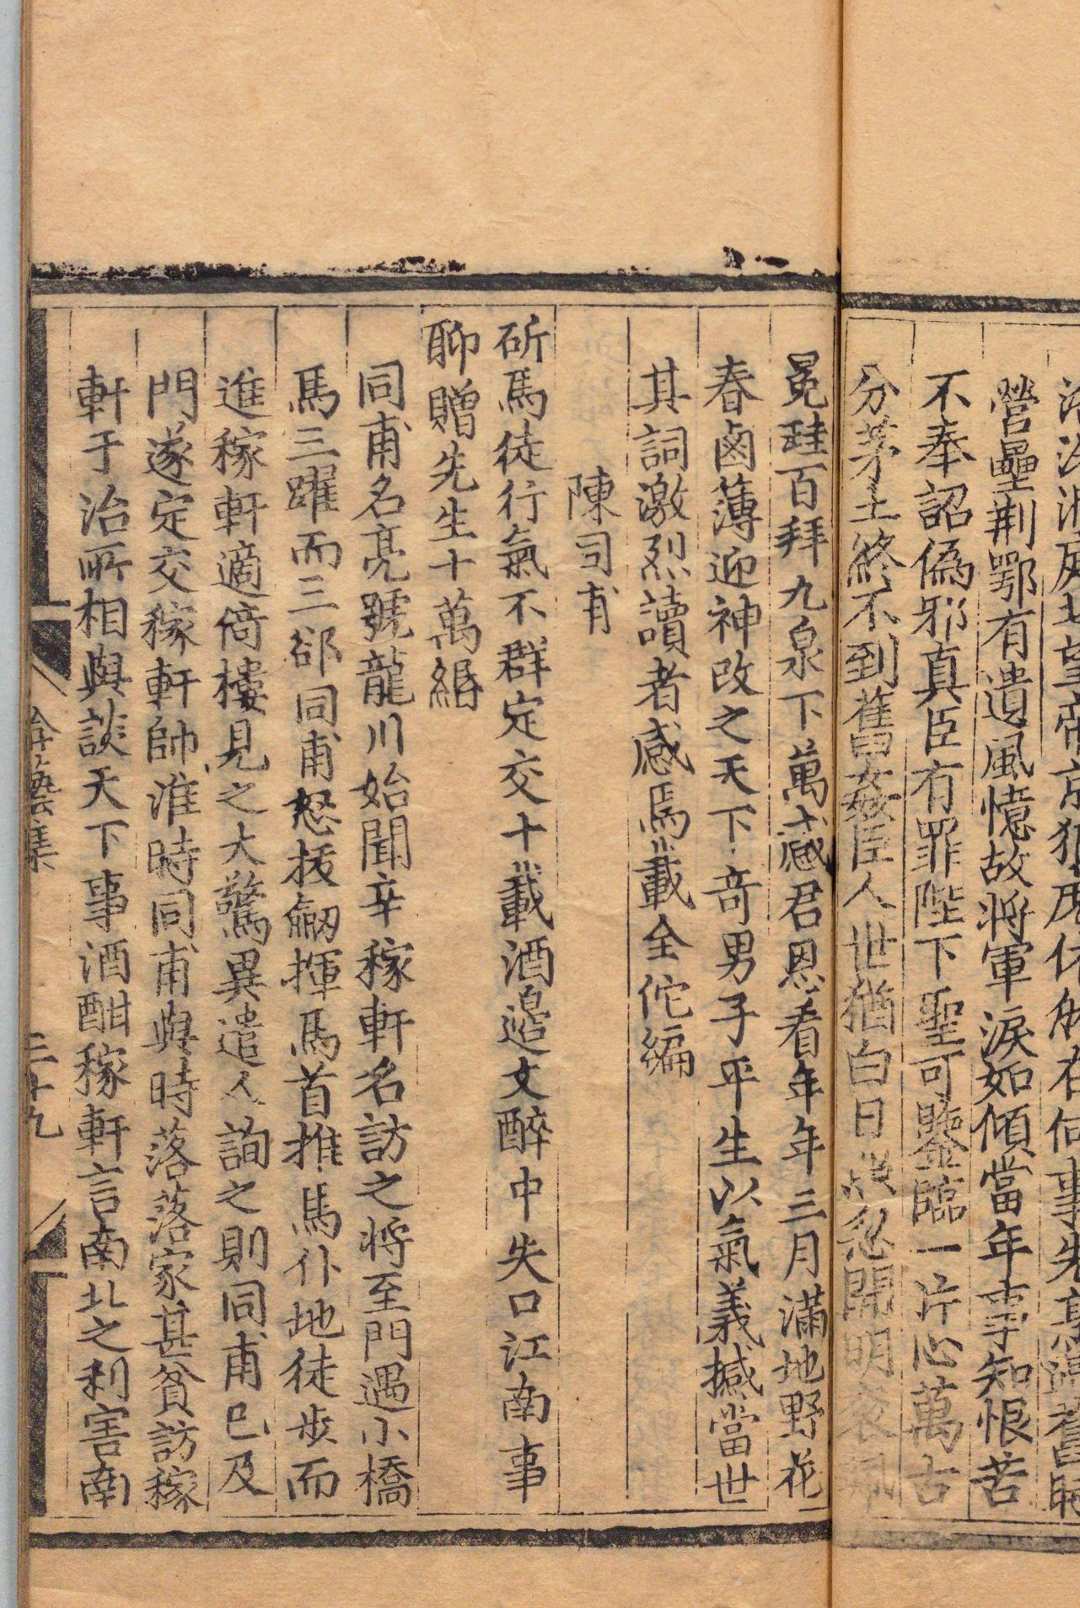 營壘荆鄂有遺風憶故將軍淚如傾當年事知恨苦
不奉詔偽邪真臣有罪陛下聖可鑒臨一片心萬古
分茅土終不到舊姦臣人世猶白日忍開明
冕珪百拜九泉下萬感君恩看年年三月滿地野花
春鹵薄迎神改之天下奇男子平生以氣義撼當世
其詞激烈讀者感焉載全佗編
陳同甫
斫馬徒行氣不群定交十載酒邉文醉中失口江南事
聊贈先生十萬緡
同甫名亮號龍川始聞辛稼軒名訪之將至門遇小橋
馬三躍而三郤同甫怒拔劒揮馬首推馬仆地徒步而
進稼軒適倚樓見之大驚異遣人詢之則同甫已及
門遂定交稼軒帥淮時同甫與時落落家甚貧訪稼
軒于治所相與談天下事酒酣稼軒言南北之利害南
三十九